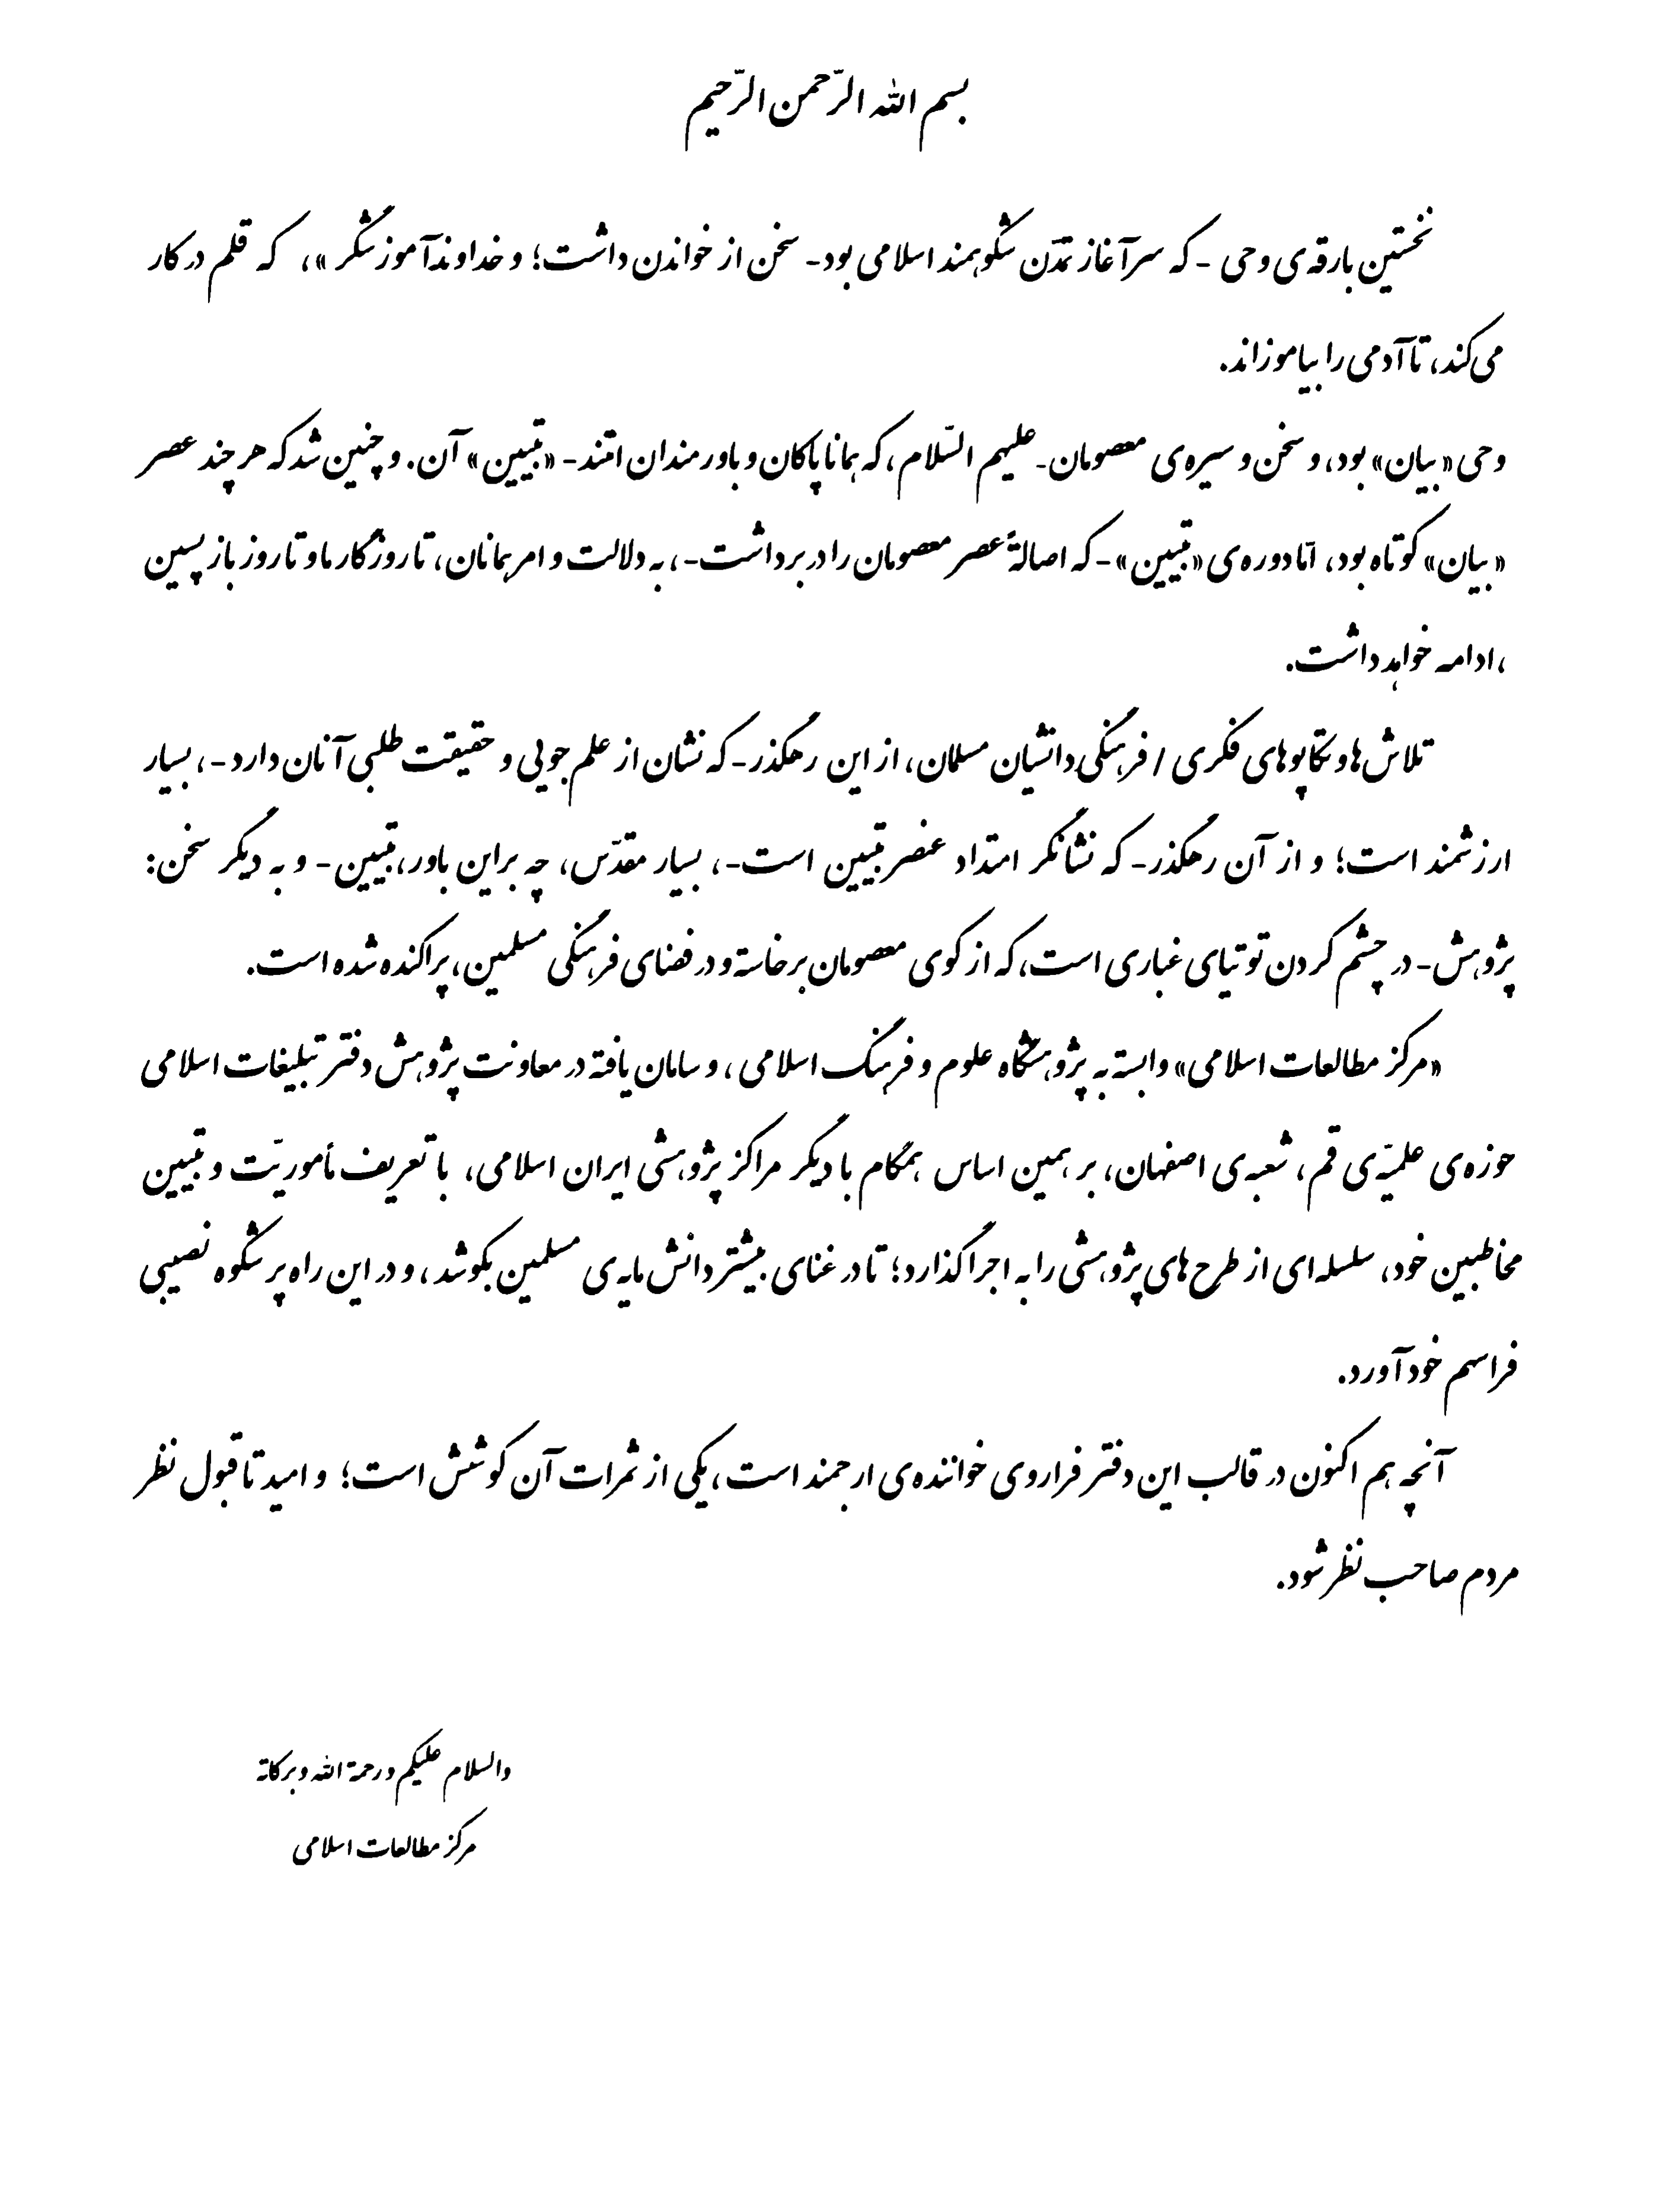 بسم الله الرّحمن الرّحیم
نخستین بارقه‌ی وحی -که سرآغاز تمدّن شکوهمند اسلامی بود- سخن از خواندن داشت؛ و خداوندآموزشگر »، که قلم در کار
می‌کند، تا آدمی را بیاموزاند.
وحی «بیان» بود، و سخن و سیره‌ی معصومان- علیهم السّلام، که همانا پاکان و باورمندان امتند- «تبیین» آن. و چنین شد که هر چند عصر
«بیان» کوتاه بود، امّا دوره‌ی «تبیین» -که اصالةً عصر معصومان را در بر داشت-، به دلالت و امر همانان، تا روزگار ما و تا روز باز پسین
، ادامه خواهد داشت.
تلاش‌ها و تکاپوهای فکری / فرهنگی دانشیان مسلمان، از این رهگذر- که نشان از علم جویی و حقیقت طلبی آنان دارد -، بسیار
ارزشمند است؛ و از آن رهگذر- که نشانگر امتداد عنصر تبیین است-، بسیار مقدّس، چه بر این باور، تبیین - و به دیگر سخن:
پژوهش- در چشم کردن توتیای غباری است، که از کوی معصومان برخاسته و در فضای فرهنگی مسلمین، پراکنده شده است.
«مرکز مطالعات اسلامی» وابسته به پژوهشگاه علوم و فرهنگ اسلامی، و سامان یافته در معاونت پژوهش دفتر تبلیغات اسلامی
حوزه‌ی علمیّه‌ی قم، شعبه‌ی اصفهان، بر همین اساس همگام با دیگر مراکز پژوهشی ایران اسلامی، با تعریف مأموریّت و تبیین
مخاطبین خود، سلسله‌ای از طرح‌های پژوهشی را به اجرا گذارد؛ تا در غنای بیشتر دانش مایه‌ی مسلمین بکوشد، و در این راه پر شکوه نصیبی
فراسهم خود آورد.
آنچه هم اکنون در قالب این دفتر فراروی خواننده‌ی ارجمند است، یکی از ثمرات آن کوشش است؛ و امید تا قبول نظر
مردم صاحب نظر شود.
والسلام علیکم و رحمة الله و برکاته
مرکز مطالعات اسلامی